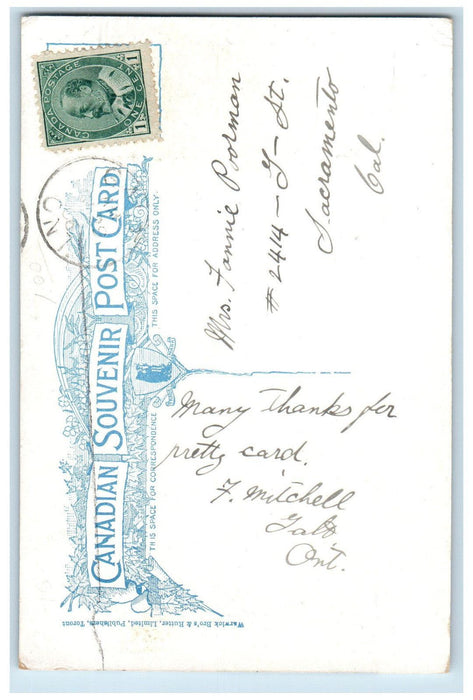 CANADIAN SOUVENIR POST CARD
THIS SPACE FOR CORRESPONDENCE
THIS SPACE FOR ADDRESS ONLY
CANADA POSTAGE
ONE CENT
1 1
ONT
Mrs. Fannie Poorman
# 2414 - G - St.
Sacramento
Cal.
Many thanks for
pretty card.
F. Mitchell
Galt
Ont.
Warwick Bro's & Rutter, Limited, Publishers, Toront